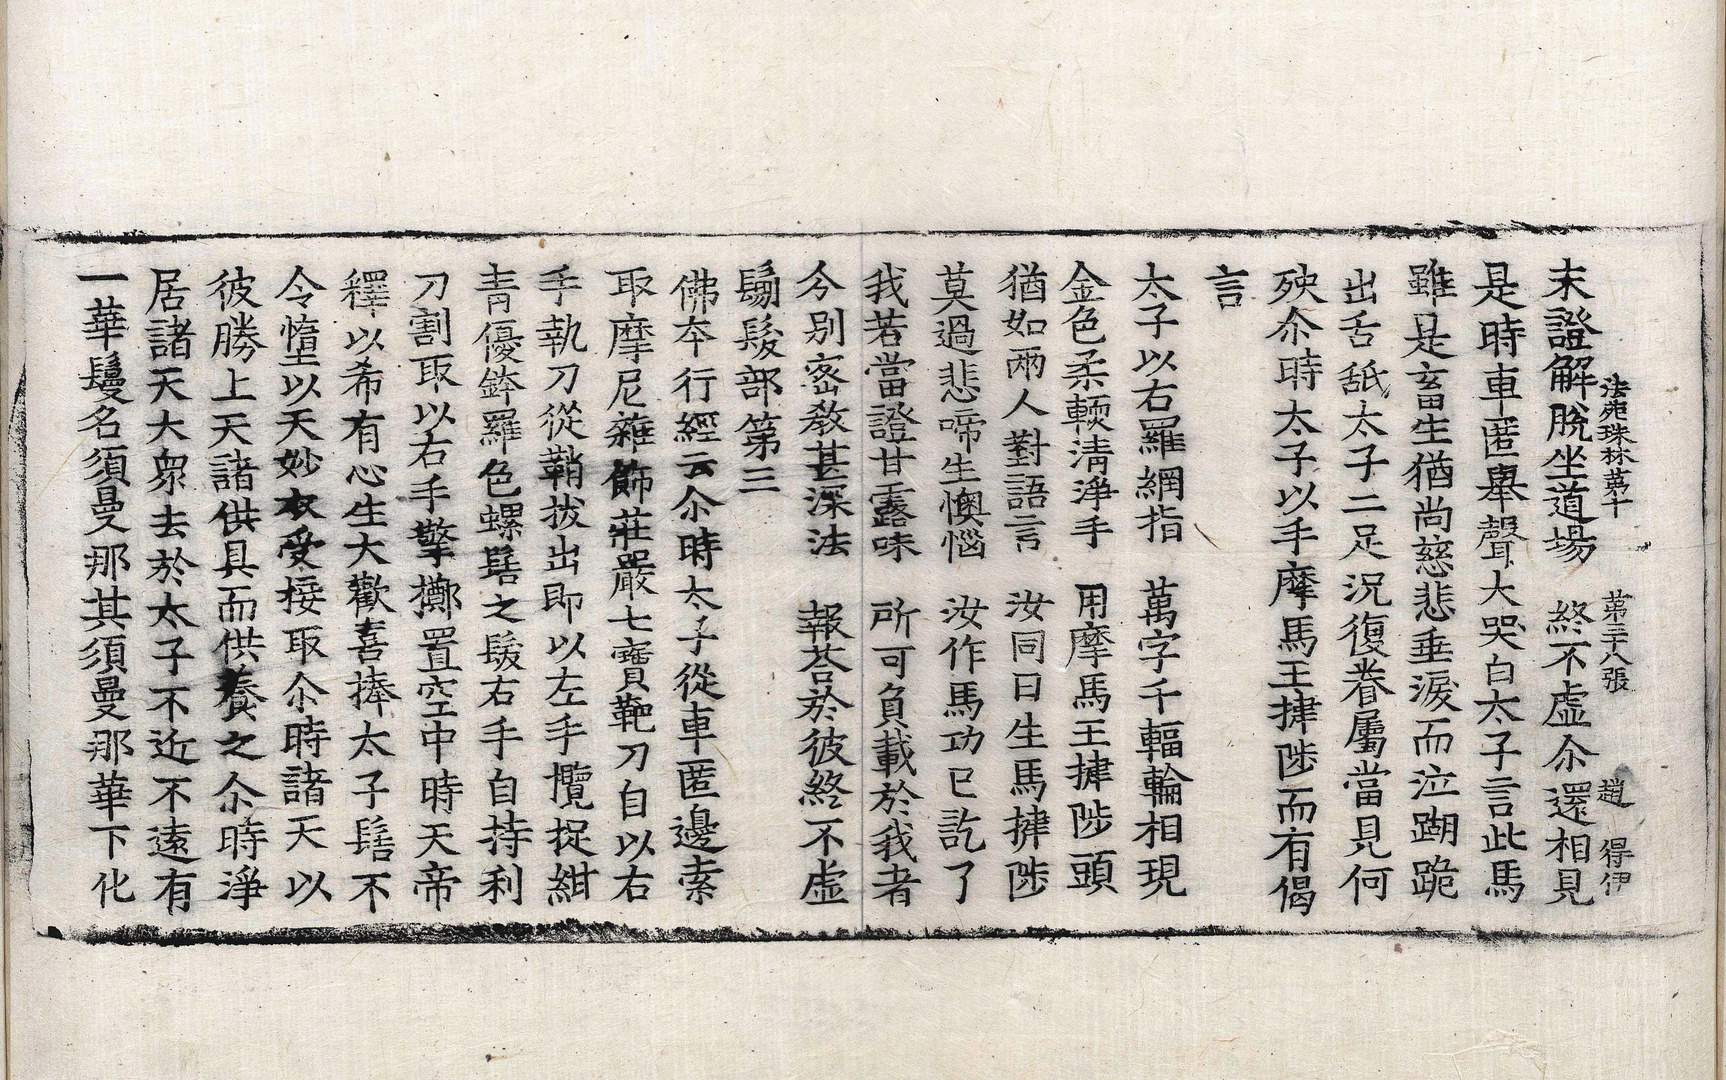 法苑珠林第十　第三十八張　趙　得伊
未證解脫坐道場　終不虛尒還相見
是時車匿舉聲大哭白太子言此馬
雖是畜生猶尚慈悲垂淚而泣𨄔跪
出舌舐太子二足況復眷屬當見何
殃尒時太子以手摩馬王揵陟而有偈
言
太子以右羅網指　萬字千輻輪相現
金色柔輭清淨手　用摩馬王揵陟頭
猶如兩人對語言　汝同日生馬揵陟
莫過悲啼生懊惱　汝作馬功已訖了
我若當證甘露味　所可負載於我者
今別密教甚深法　報荅於彼終不虛
鬀髮部第三
佛本行經云尒時太子從車匿邊索
取摩尼雜飾莊嚴七寶靶刀自以右
手執刀從鞘拔出即以左手攬捉紺
青優鉢羅色螺髻之髮右手自持利
刀割取以右手擎擲置空中時天帝
釋以希有心生大歡喜捧太子髻不
令墮以天妙衣受接取尒時諸天以
彼勝上天諸供具而供養之尒時淨
居諸天大眾去於太子不近不遠有
一華鬘名須曼那其須曼那華下化